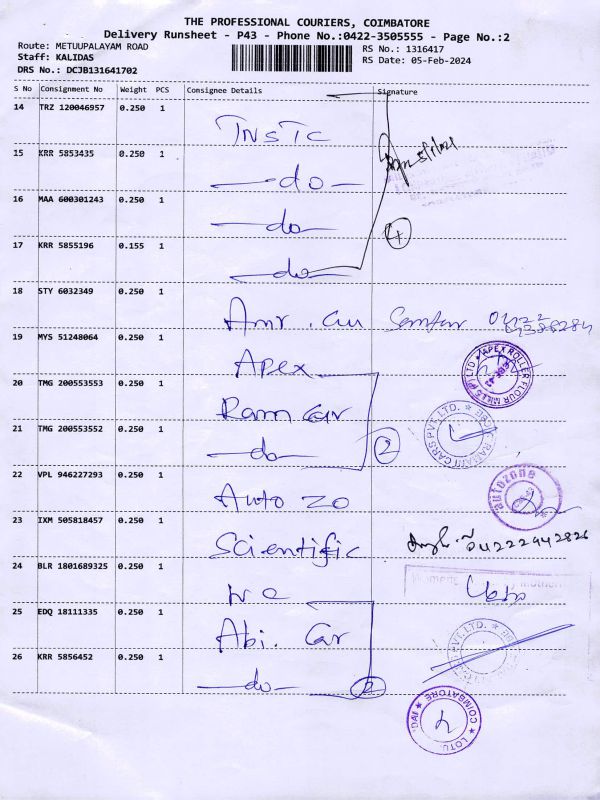 THE PROFESSIONAL COURIERS, COIMBATORE
Delivery Runsheet - P43 - Phone No.:0422-3505555 - Page No.:2
Route: METUUPALAYAM ROAD
Staff: KALIDAS
DRS No.: DCJB131641702
RS No.: 1316417
RS Date: 05-Feb-2024
S No Consignment No Weight PCS Consignee Details Signature
14 TRZ 120046957 0.250 1 TNSTC
15 KRR 5853435 0.250 1 do
16 MAA 600301243 0.250 1 do
4
17 KRR 5855196 0.155 1 do
18 STY 6032349 0.250 1
19 MYS 51248064 0.250 1 Apex
APEX ROLLER FLOUR MILLS (P) LTD
20 TMG 200553553 0.250 1 Ram Car
21 TMG 200553552 0.250 1 do 2
RAMANI CARS PVT. LTD.
22 VPL 946227293 0.250 1 Auto zo
autozone
23 IXM 505818457 0.250 1 Scientific
24 BLR 1801689325 0.250 1
25 EDQ 18111335 0.250 1 Abi. Car
PVT. LTD.
26 KRR 5856452 0.250 1 do 2
COIMBATORE